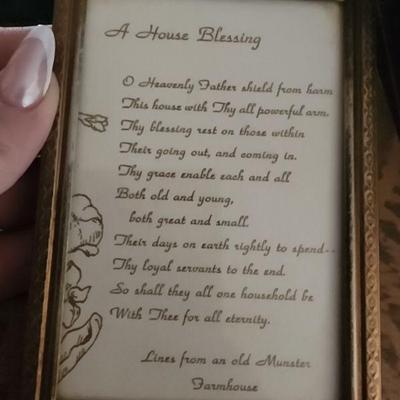 A House Blessing
O Heavenly Father shield from harm
This house with Thy all powerful arm.
Thy blessing rest on those within
Their going out, and coming in.
Thy grace enable each and all
Both old and young,
both great and small.
Their days on earth rightly to spend--
Thy loyal servants to the end.
So shall they all one household be
With Thee for all eternity.
Lines from an old Munster
Farmhouse